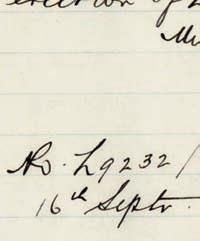 erection of
No. L9232/
16th Septr.